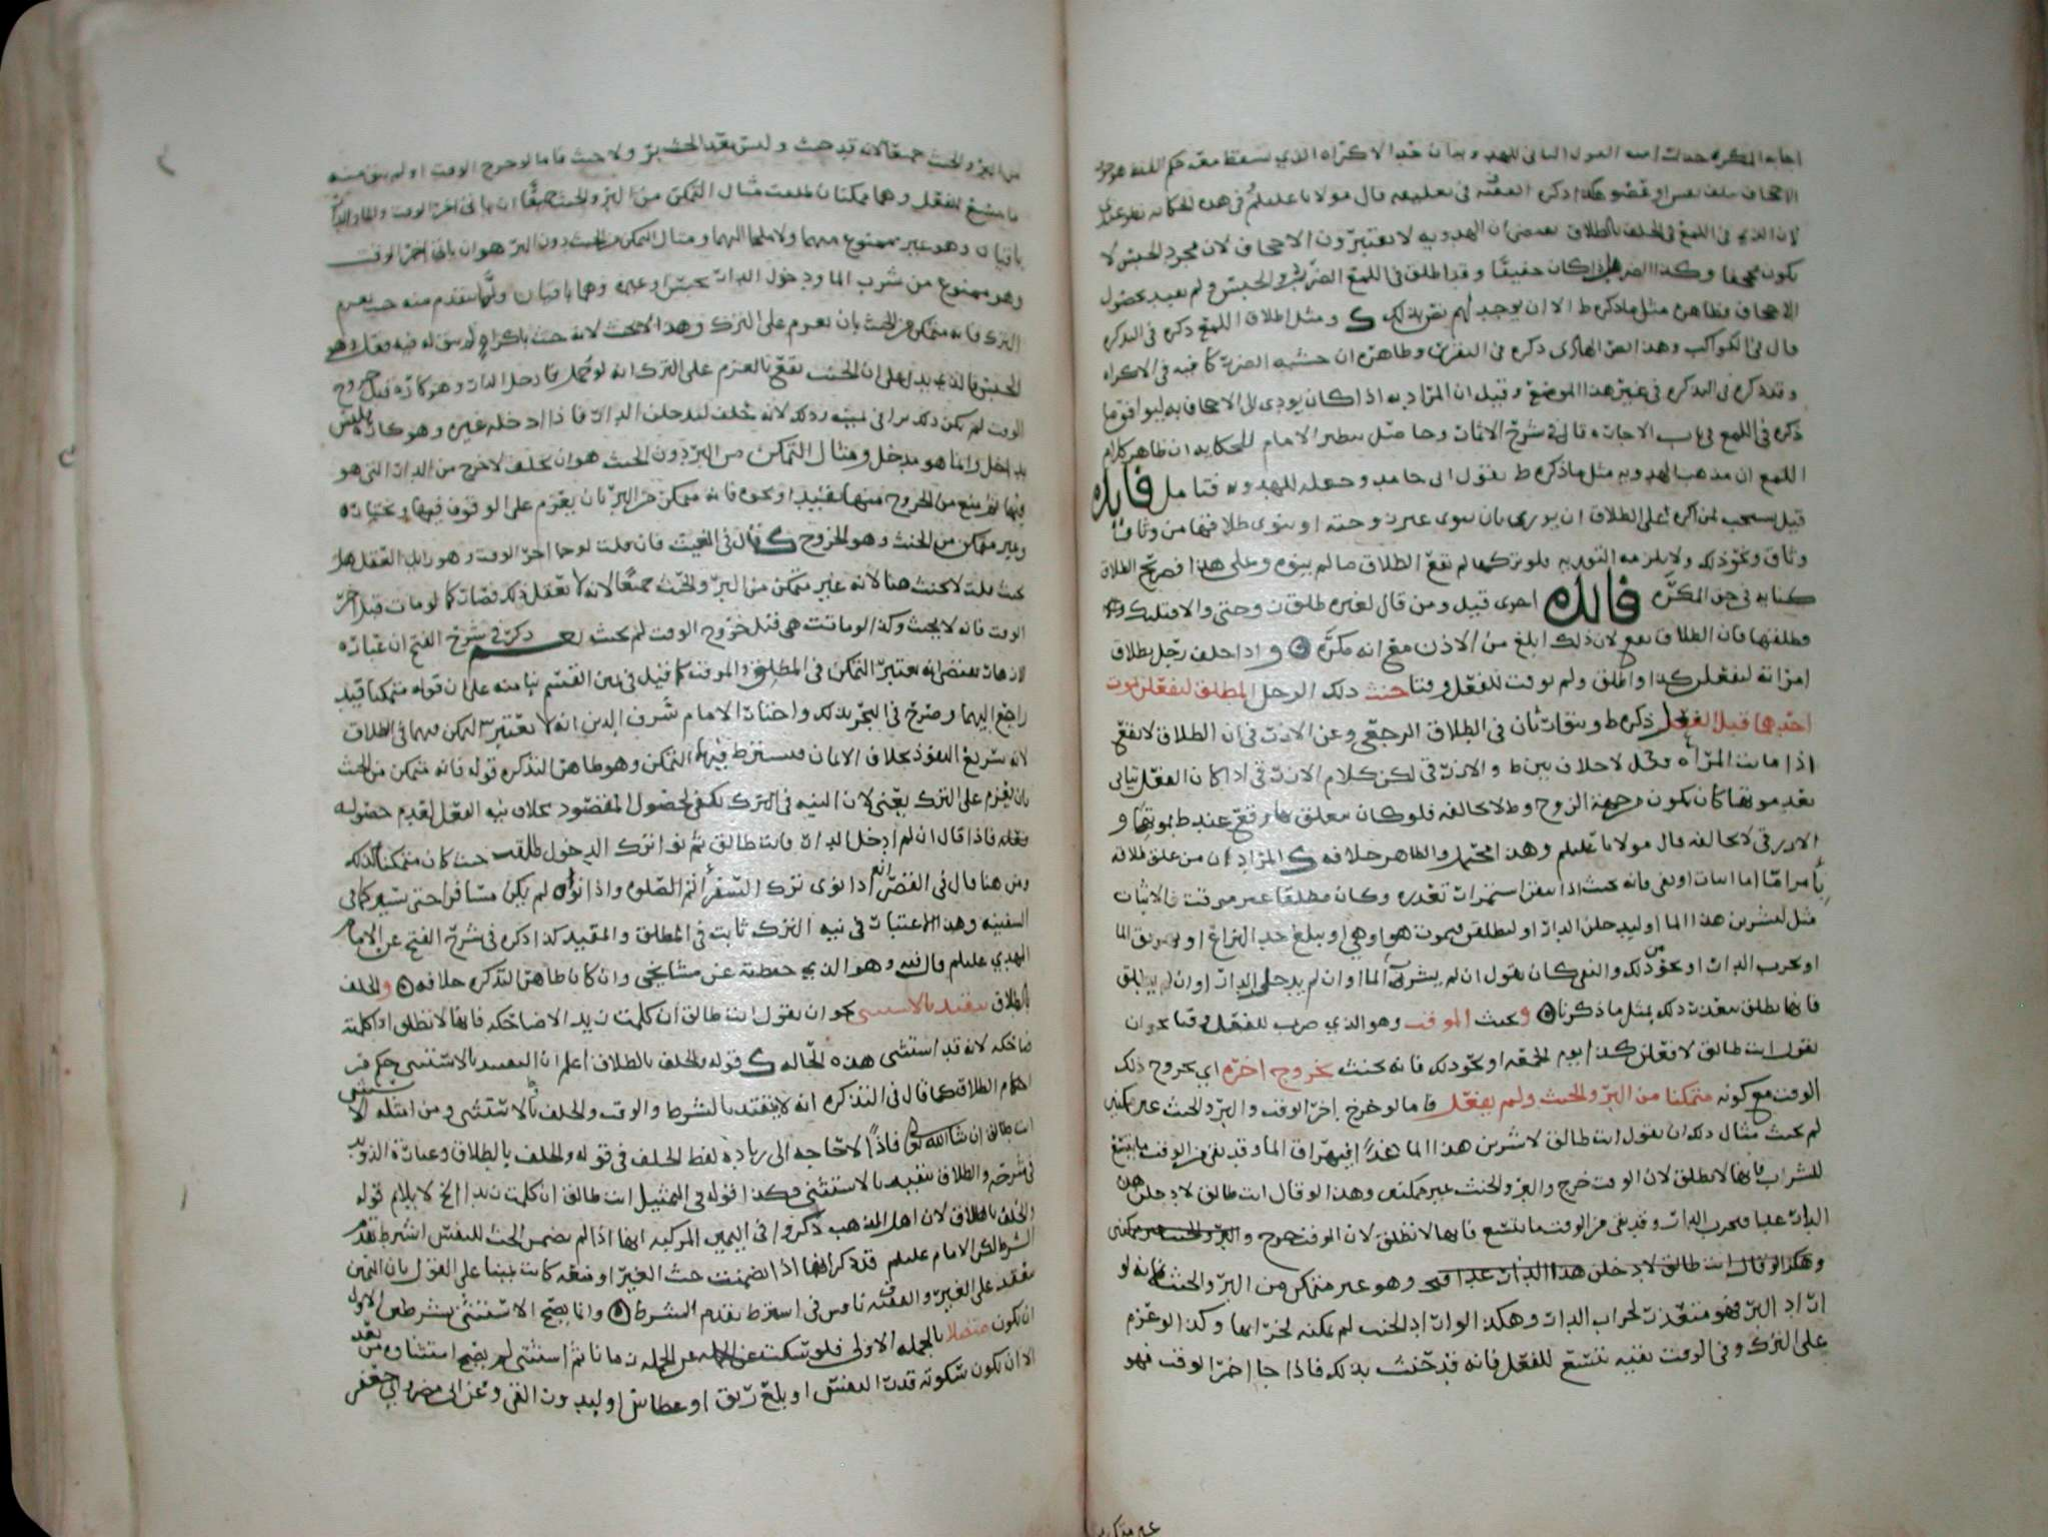 الاجحاف بتلف نفس او عضو هكذا ذكره الفقيه في تعليقه قال مولانا عليلم في هذه الحكايه نظر عندي
لان الذي في اللمع في الحلف بالطلاق ان الهدويه لا يعتبرون الاجحاف لان مجرد الحبس لا
يكون مجحفا وكذا الضرب اذا كان خفيفا وقد اطلق في اللمع الضرب والحبس ولم يقيد بحصول
الاجحاف فظاهره مثل ما ذكره ط الا ان يوجد لهم نص بذلك ك ومثل اطلاق اللمع ذكره في التذكره
قال في الكواكب وهذا ذكره في التقرير وظاهره ان خشيه الضرب كافيه في الاكراه
وقد ذكره في التذكره في غير هذا الموضع وقيل ان المراد به اذا كان يودي الى الاجحاف به ليوافق ما
ذكره في اللمع في باب الاجاره قال في شرح الاثمار وحاصل تنظير الامام للحكايه ان ظاهر كلام
اللمع ان مذهب الهدويه مثل ما ذكره ط بقول ابي حامد وجعله للهدويه فتامل فايده
قيل يستحب لمن اكره على الطلاق ان يوري بان ينوي غير زوجته او ينوي طلاقها من وثاق
وثاق ونحو ذلك ولا يلزمه التوريه فلو تركها لم يقع الطلاق ما لم ينوه وعلى هذا فصريح الطلاق
كنايه في حق المكره فايده اخرى قيل ومن قال لغيره طلق زوجتي والا قتلتك
فطلقها فان الطلاق يقع لان ذلك ابلغ من الاذن مع انه مكره واذا حلف رجل بطلاق
امراته ليفعلن كذا واطلق ولم يوقت للفعل وقتا حنث ذلك الرجل المطلق ليفعلن بموت
احدهما قبل الفعل ذكره ط وبنقات ثان في الطلاق الرجعي وعن الازرقي ان الطلاق لا يقع
اذا ماتت المراه وقيل لا خلاف بين ط والازرقي لكن كلام الازرقي اذا كان الفعل يتاتى
بعد موتها كان يكون من جهة الزوج وط لا يخالفه فلو كان معلق بها وقع عند ط بموتها و
الازرقي لا يخالفه قال مولانا عليلم وهذا محتمل والظاهر خلافه ك المراد ان من علق طلاقه
بامر اما اثبات او نفي فانه يحنث اذا استمرار تعذره وكان مطلقا غير موقت فالاثبات
مثل ليشربن هذا الما او ليدخلن الدار او ليطلقن فيموت هو او هي او يبلغ حد النزاع او يهريق الما
او تخرب الدار او نحو ذلك والنفي كان يقول ان لم يشرب الما او ان لم يدخل الدار او ان لم يطلق
فانها تطلق بتعذر ذلك بمثل ما ذكرنا ويحنث الموقت وهو الذي ضرب للفعل وقتا نحو ان
يقول انت طالق لافعلن كذا يوم الجمعه او نحو ذلك فانه يحنث بخروج اخره اي بخروج ذلك
الوقت مع كونه متمكنا من البر والحنث ولم يفعل فاما لو خرج اخر الوقت والبر والحنث غير ممكنين
لم يحنث مثال ذلك ان يقول انت طالق لاشربن هذا الما غدا فيهراق الما وقد بقي من الوقت ما يتسع
للشراب فانها لا تطلق لان الوقت خرج والبر والحنث غير ممكنين وهذا لو قال انت طالق لادخلن هذه
الدار غدا فتخرب الدار وقد بقي من الوقت ما يتسع فانها لا تطلق لان الوقت خرج والبر والحنث غير ممكنين
وهكذا لو قال انت طالق لادخلن هذا الدار غدا وهو غير متمكن من البر والحنث فانه لو
اراد البر فهو متعذر لخراب الدار وهكذا لو اراد الحنث لم يمكنه لخرابها وكذا لو عزم
على الترك وفي الوقت بقيه تتسع للفعل فانه قد حنث بذلك فاذا جا اخر الوقت فهو
من البر والحنث جميعا لانه قد حنث وليس بعد الحنث بر ولا حنث فاما لو خرج الوقت او لم يبق منه
ما يتسع للفعل وهما ممكنان طلقت مثال التمكن من البر والحنث جميعا ان ياتي اخر الوقت والما والدار
باقيان وهو غير ممنوع منهما ولا ملجا اليهما ومثال التمكن من الحنث دون البر هو ان ياتي اخر الوقت
وهو ممنوع من شرب الما ودخول الدار بحبس او غيره وهما باقيان ولما يتقدم منه حنث بعزم
الترك فانه متمكن من الحنث بان يعزم على الترك وهذا لا يحنث لانه حنث باكراه لم يبق له فيه فعل وهو
الحبس فالذي يدل على ان الحنث يقع بالعزم على الترك انه لو حمل فادخل الدار وهو كاره قبل خروج
الوقت لم يكن ذلك برا في يمينه وذلك لانه حلف ليدخلن الدار فاذا ادخله غيره وهو كاره فليس
بداخل وانما هو مدخل ومثال التمكن من البر دون الحنث هو ان يحلف لاخرج من الدار التي هو
فيها ثم يمنع من الخروج منها بتقييد او نحوه فانه متمكن من البر بان يعزم على الوقوف فيها ويختاره
وغير متمكن من الحنث وهو الخروج ك قال في الغيث فان قلت لو جا اخر الوقت وهو زايل العقل هل
يحنث قلت لا يحنث هنا لانه غير متمكن من البر والحنث جميعا لانه لا يعقل ذلك فصار كما لو مات قبل اخر
الوقت فانه لا يحنث وكذا لو ماتت هي قبل خروج الوقت لم يحنث نعم ذكر في شرح الفتح ان عبارة
الازهار تقتضي انه يعتبر التمكن في المطلق والموقت كما قيل في القسم بنا منه على ان قوله متمكنا قيد
راجع اليهما وصرح في البحر بذلك واختار الامام شرف الدين انه لا يعتبر التمكن فيهما في الطلاق
لانه سريع النفوذ بخلاف الايمان فيشترط فيها التمكن وهو ظاهر التذكره قوله فانه متمكن من الحنث
بان يعزم على الترك يعني لان النيه في الترك تكفي لحصول المقصود بخلاف نيه الفعل لعدم حصوله
فعله فاذا قال ان لم ادخل الدار فانت طالق ثم نوا ترك الدخول طلقت حيث كان متمكنا كذلك
ومن هنا قال في القصر انه اذا نوى ترك السفر اتم الصلوه واذا نواه لم يكن مسافرا حتى تسير كما في
السفينه وهذا الاعتبار في نيه الترك ثابت في المطلق والمقيد كذا ذكره في شرح الفتح عن الامام
المهدي عليلم قال فيه وهو الذي حفظته عن مشايخي وان كان ظاهر التذكره خلافه والحلف
بالطلاق يتقيد بالاستثنى نحو ان يقول انت طالق ان كلمت زيدا الا ضاحكه فانها لا تطلق اذا كلمته
ضاحكه لانه قد استثنى هذه الحاله ك قوله والحلف بالطلاق اعلم ان التقييد بالاستثنى حكم من
احكام الطلاق كما قال في التذكره انه يتقيد بالشرط والوقت والحلف بالاستثنى ومن امثله الاستثنى
انت طالق ان شا الله تعالى فاذا لا حاجه الى زياده لفظ الحلف في قوله والحلف بالطلاق وعبارة
في شرحه والطلاق يتقيد بالاستثنى وكذا قوله في التمثيل انت طالق ان كلمت زيدا الخ لا يلايم قوله
والحلف بالطلاق لان اهل المذهب ذكروا في اليمين المركبه انها اذا لم تضمن الحث للنفس اشترط تقدم
الشرط لكن الامام عليلم قد ذكر انها اذا تضمنت حث الغير او منعه كانت يمينا على القول بان اليمين
تنعقد على الغير والفقيه في اشتراط تقدم الشرط وانما يصح الاستثنى بشرطين الاول
ان يكون متصلا بالجمله الاولى فلو سكت عن الجمله زمانا ثم استثنى لم يصح استثناوه من بعد
الا ان يكون سكوته قدر النفس او بلع ريق او عطاس او القي وعن